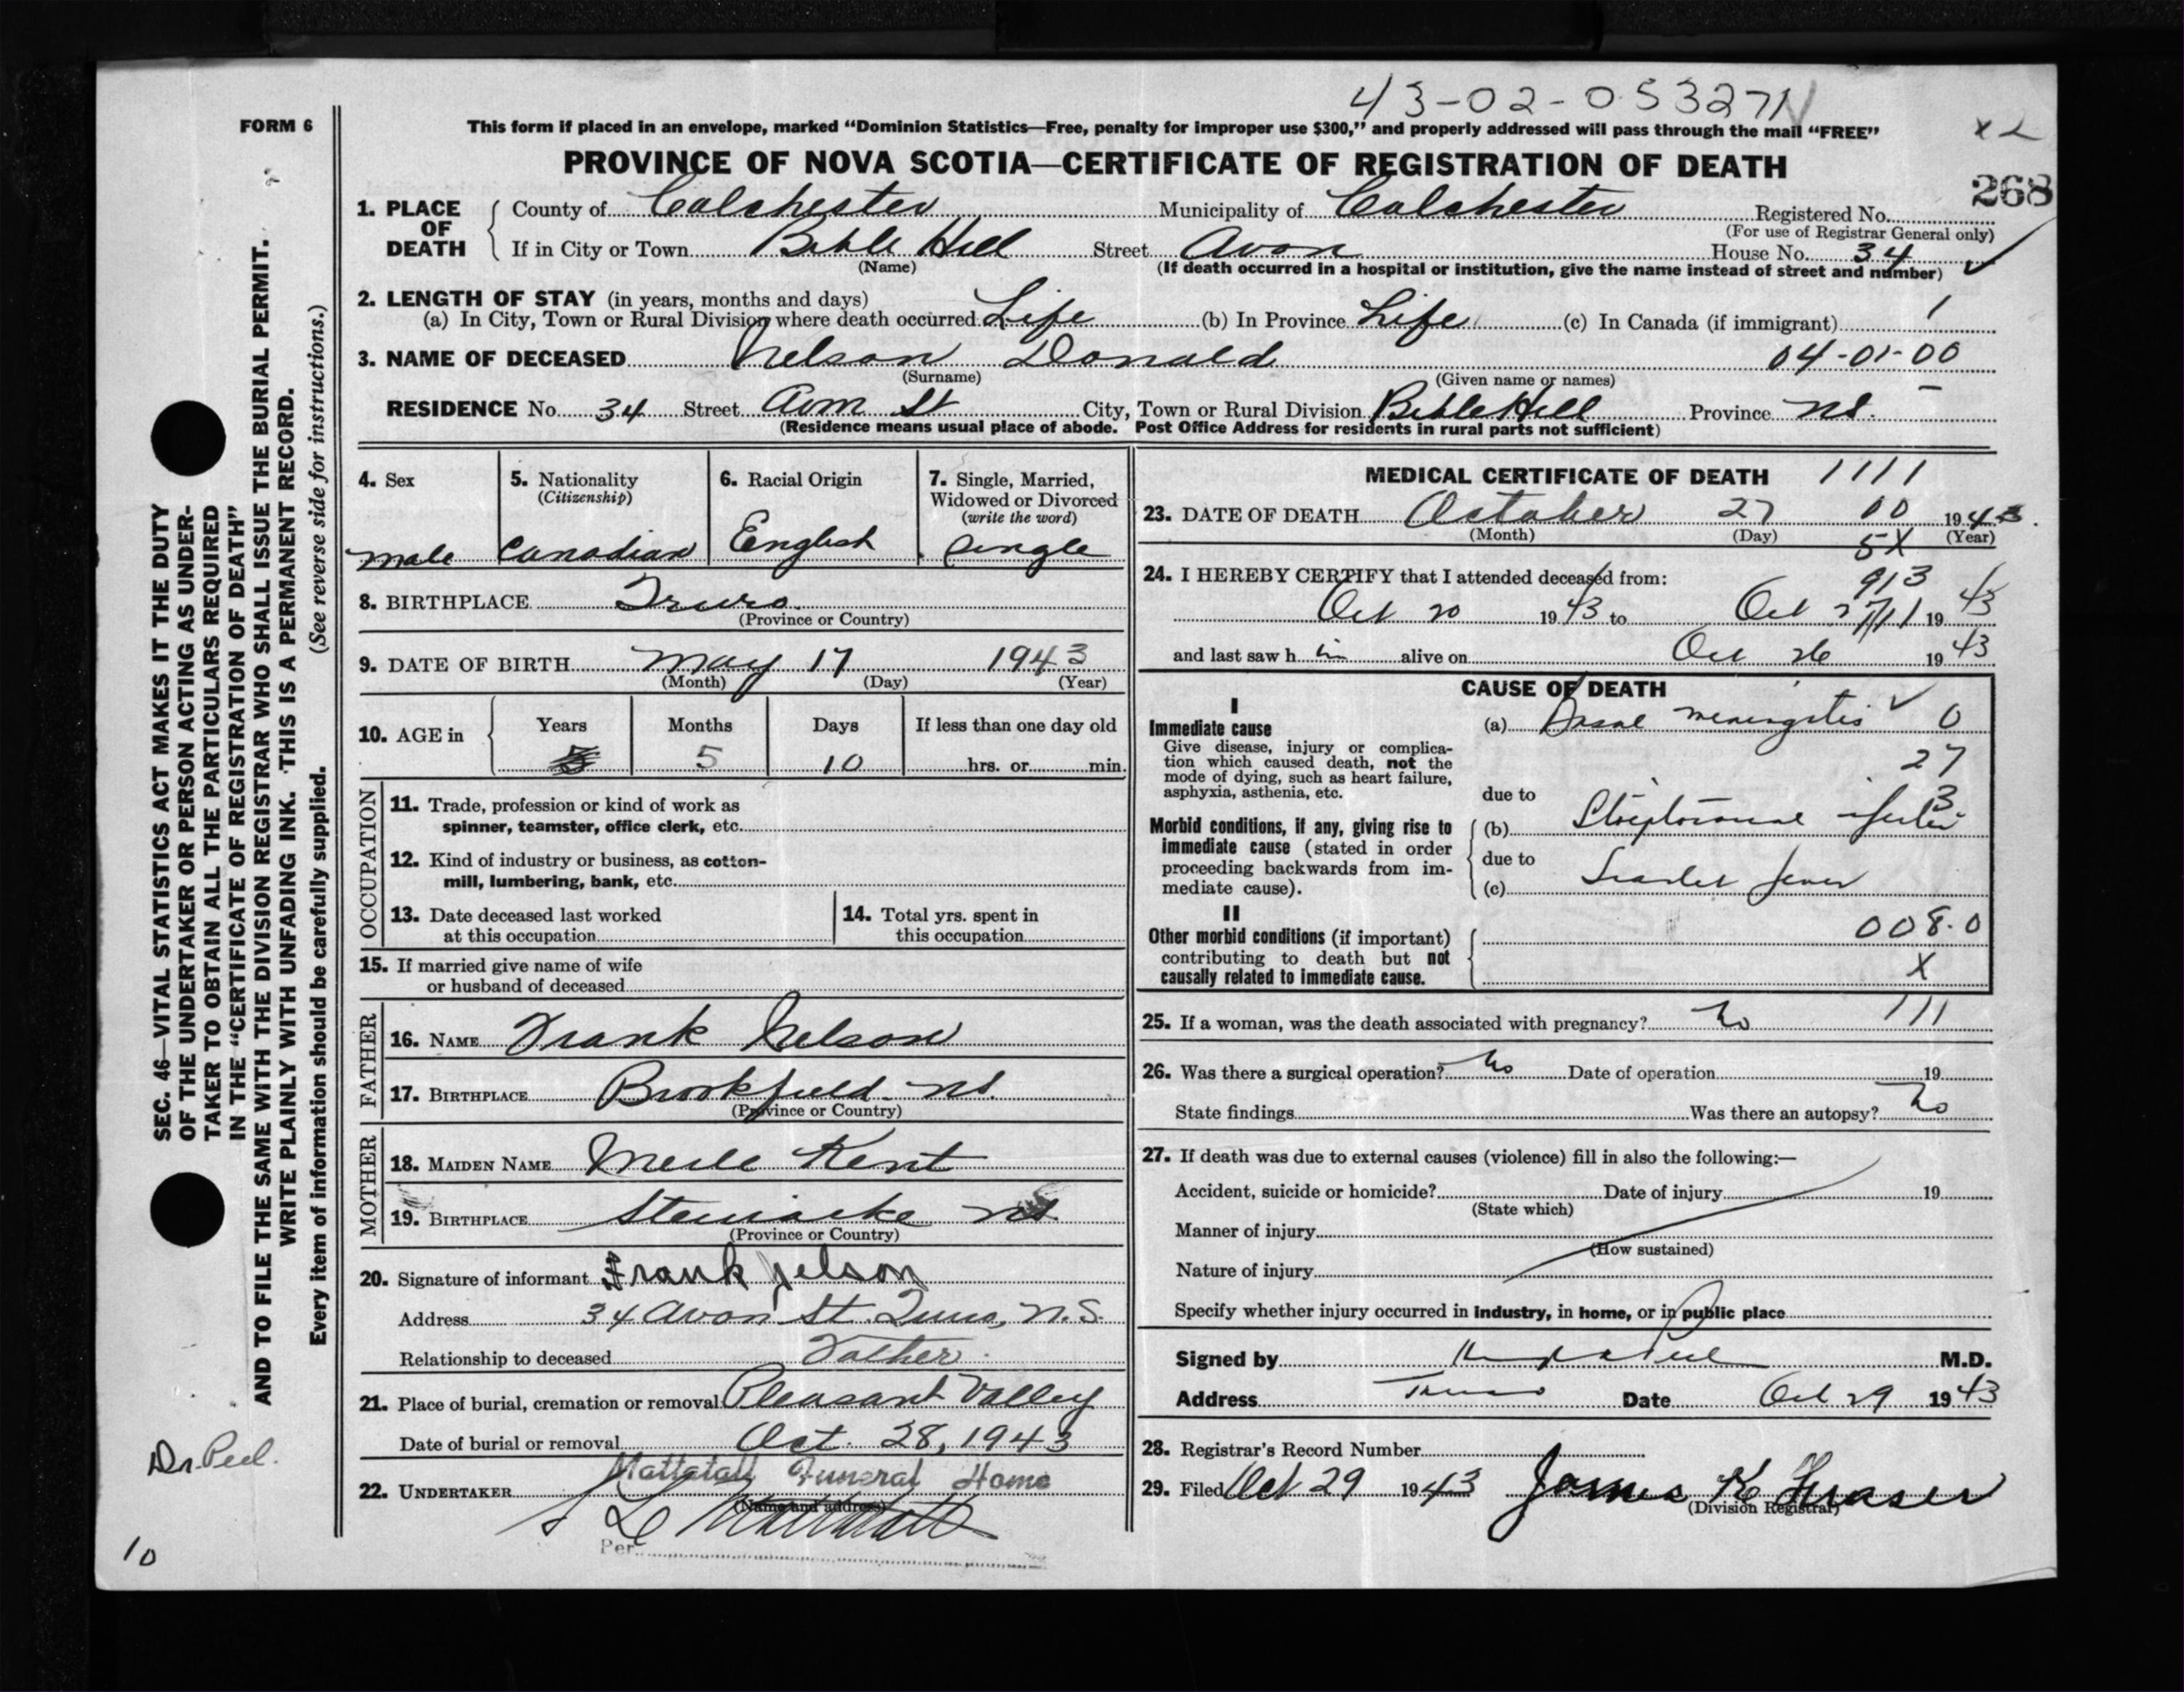 43-02-053271
FORM 6
This form if placed in an envelope, marked “Dominion Statistics—Free, penalty for improper use $300,” and properly addressed will pass through the mail “FREE”
PROVINCE OF NOVA SCOTIA—CERTIFICATE OF REGISTRATION OF DEATH
268
1. PLACE OF DEATH { County of Colchester Municipality of Colchester Registered No.
(For use of Registrar General only)
If in City or Town Bible Hill Street Avon House No. 34
(Name) (If death occurred in a hospital or institution, give the name instead of street and number)
2. LENGTH OF STAY (in years, months and days)
(a) In City, Town or Rural Division where death occurred Life (b) In Province Life (c) In Canada (if immigrant)
3. NAME OF DECEASED Nelson Donald 04-01-00
(Surname) (Given name or names)
RESIDENCE No. 34 Street Avon St City, Town or Rural Division Bible Hill Province NS.
(Residence means usual place of abode. Post Office Address for residents in rural parts not sufficient)
4. Sex
male
5. Nationality
(Citizenship)
Canadian
6. Racial Origin
English
7. Single, Married,
Widowed or Divorced
(write the word)
Single
8. BIRTHPLACE Truro
(Province or Country)
9. DATE OF BIRTH May 17 1943
(Month) (Day) (Year)
10. AGE in { Years Months Days If less than one day old
5 10 hrs. or min.
OCCUPATION
11. Trade, profession or kind of work as
spinner, teamster, office clerk, etc.
12. Kind of industry or business, as cotton-
mill, lumbering, bank, etc.
13. Date deceased last worked
at this occupation
14. Total yrs. spent in
this occupation
15. If married give name of wife
or husband of deceased
FATHER
16. NAME Frank Nelson
17. BIRTHPLACE Brookfield NS.
(Province or Country)
MOTHER
18. MAIDEN NAME Merle Kent
19. BIRTHPLACE Stewiacke NS
(Province or Country)
20. Signature of informant Frank Nelson
Address 34 Avon St. Truro, N.S.
Relationship to deceased Father.
21. Place of burial, cremation or removal Pleasant Valley
Date of burial or removal Oct. 28, 1943
Mattatall Funeral Home
22. UNDERTAKER
(Name and address)
Per
MEDICAL CERTIFICATE OF DEATH 1111
23. DATE OF DEATH October 27 00 1943.
(Month) (Day) (Year)
5X
24. I HEREBY CERTIFY that I attended deceased from:
913
Oct 20 1943 to Oct 27 1943
and last saw h im alive on Oct 26 1943
CAUSE OF DEATH
I
Immediate cause
Give disease, injury or complica-
tion which caused death, not the
mode of dying, such as heart failure,
asphyxia, asthenia, etc.
(a) Basal meningitis 0
27
due to
3
Morbid conditions, if any, giving rise to
immediate cause (stated in order
proceeding backwards from im-
mediate cause).
(b) Streptococcal infection
due to
(c) Scarlet fever
II
Other morbid conditions (if important)
contributing to death but not
causally related to immediate cause.
008.0
X
25. If a woman, was the death associated with pregnancy? No 111
26. Was there a surgical operation? No Date of operation 19
State findings Was there an autopsy? No
27. If death was due to external causes (violence) fill in also the following:—
Accident, suicide or homicide? Date of injury 19
(State which)
Manner of injury
(How sustained)
Nature of injury
Specify whether injury occurred in industry, in home, or in public place
Signed by M.D.
Address Truro Date Oct 29 1943
28. Registrar's Record Number
29. Filed Oct 29 1943 James K Fraser
(Division Registrar)
SEC. 46—VITAL STATISTICS ACT MAKES IT THE DUTY
OF THE UNDERTAKER OR PERSON ACTING AS UNDER-
TAKER TO OBTAIN ALL THE PARTICULARS REQUIRED
IN THE “CERTIFICATE OF REGISTRATION OF DEATH”
AND TO FILE THE SAME WITH THE DIVISION REGISTRAR WHO SHALL ISSUE THE BURIAL PERMIT.
WRITE PLAINLY WITH UNFADING INK. THIS IS A PERMANENT RECORD.
Every item of information should be carefully supplied. (See reverse side for instructions.)
Dr. Peel.
10